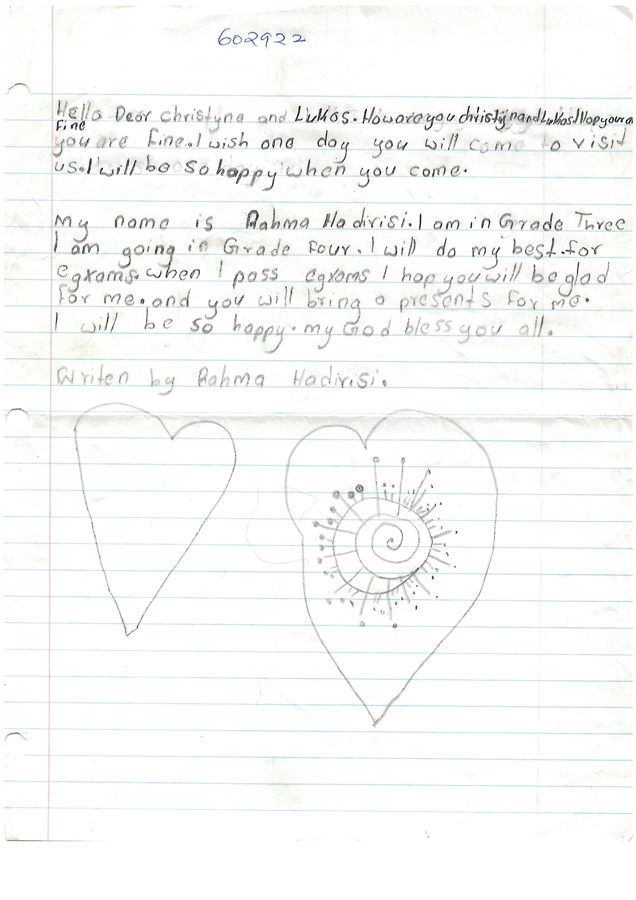 602922
Hello Dear christyna and Lukas. How are you christynandLukas I Hop you a
Fine
you are Fine. I wish one day you will come to visit
us. I will be so happy when you come.
My name is Rahma Hadirisi. I am in Grade Three
I am going in Grade Four. I will do my best. for
egxams. when I pass egxams I hop you will be glad
For me. and you will bring a presents for me.
I will be so happy. my God bless you all.
Writen by Rahma Hadirisi.